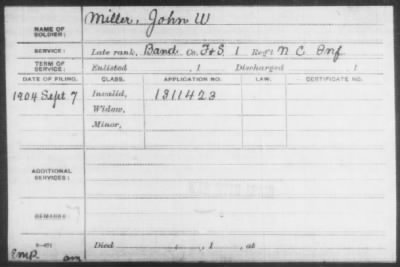 NAME OF SOLDIER: Miller, John W
SERVICE: Late rank, Band, Co. F&S, 1 Reg't N C Inf
TERM OF SERVICE: Enlisted , 1 Discharged , 1
DATE OF FILING. CLASS. APPLICATION NO. LAW. CERTIFICATE NO.
1904 Sept 7 Invalid, 1311423
Widow,
Minor,
ADDITIONAL SERVICES:
REMARKS:
Died , , 1 , at